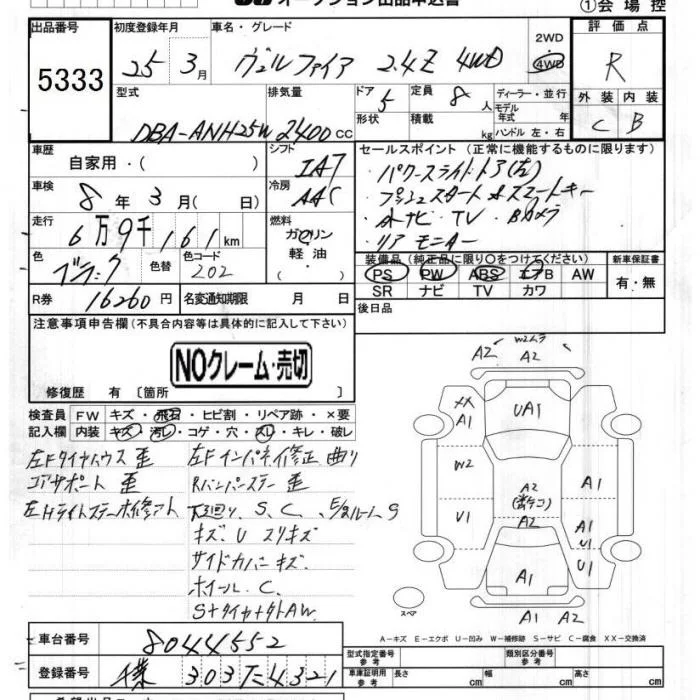 オークション出品申込書
①会場控
出品番号 5333
初度登録年月 25年 3月
車名・グレード ヴェルファイア 2.4Z 4WD
2WD
4WD
評価点 R
外装 C 内装 B
型式 DBA-ANH25W
排気量 2400cc
ドア 5
形状
定員 8人
積載 kg
ディーラー・並行
モデル年式 年
ハンドル 左・右
車歴 自家用・( )
シフト IA7
車検 8年 3月( 日)
冷房 AAC
走行 6万9千161km
燃料 ガソリン 軽油・
色 ブラック
色替
色コード 202
R券 16260円
名変通知期限 月 日
セールスポイント(正常に機能するものに限ります)
・パワースライドドア(左)
・プッシュスタート&スマートキー
・外ナビ・TV・Bカメラ
・リアモニター
装備品(純正品に限り○をつけてください)
PS PW ABS エアB AW
SR ナビ TV カワ
新車保証書
有・無
後日品
注意事項申告欄(不具合内容等は具体的に記入して下さい)
NOクレーム・売切
修復歴 有〔箇所 〕
検査員記入欄
FW キズ・飛石・ヒビ割・リペア跡・×要
内装 キズ・汚レ・コゲ・穴・スレ・キレ・破レ
左Fタイヤハウス歪
コアサポート歪
左Hライトステー木修アト
左Fインパネ修正曲り
Rバンパーステー歪
下廻り、S、C、E/gルームS
キズ、U スリキズ
サイドカバーキズ
ホイール、C
S+タイヤ+外AW
A2 W2ムラ A2
XX
A1
UA1
W2
A2
A2
A1
U1
A1
U1
U1
A1
A1 A2
スペア
A-キズ E-エクボ U-凹み W-補修跡 S-サビ C-腐食 XX-交換済
車台番号 8044552
登録番号 303 4321
型式指定番号 参考
類別区分番号 参考
車庫証明用 参考
長さ cm
幅 cm
高さ cm